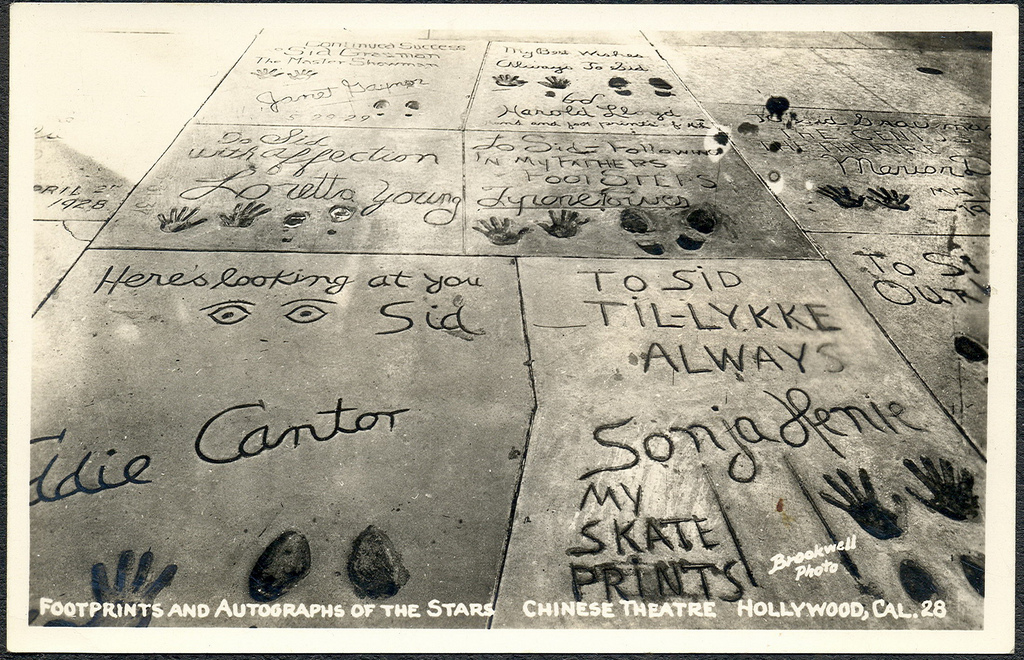 Continued Success
Sid Grauman
The Master Showman
Janet Gaynor
My Best Wishes
Always To Sid
Harold Lloyd
To Sid
with affection
Loretta Young
To Sid - Following
IN MY FATHERS
FOOTSTEPS
Tyrone Power
Marion D
1928
Here's looking at you
Sid
ddie Cantor
TO SID
TIL-LYKKE
ALWAYS
Sonja Henie
MY
SKATE
PRINTS
TO
OUR
Brookwell
Photo
FOOTPRINTS AND AUTOGRAPHS OF THE STARS CHINESE THEATRE HOLLYWOOD, CAL. 28